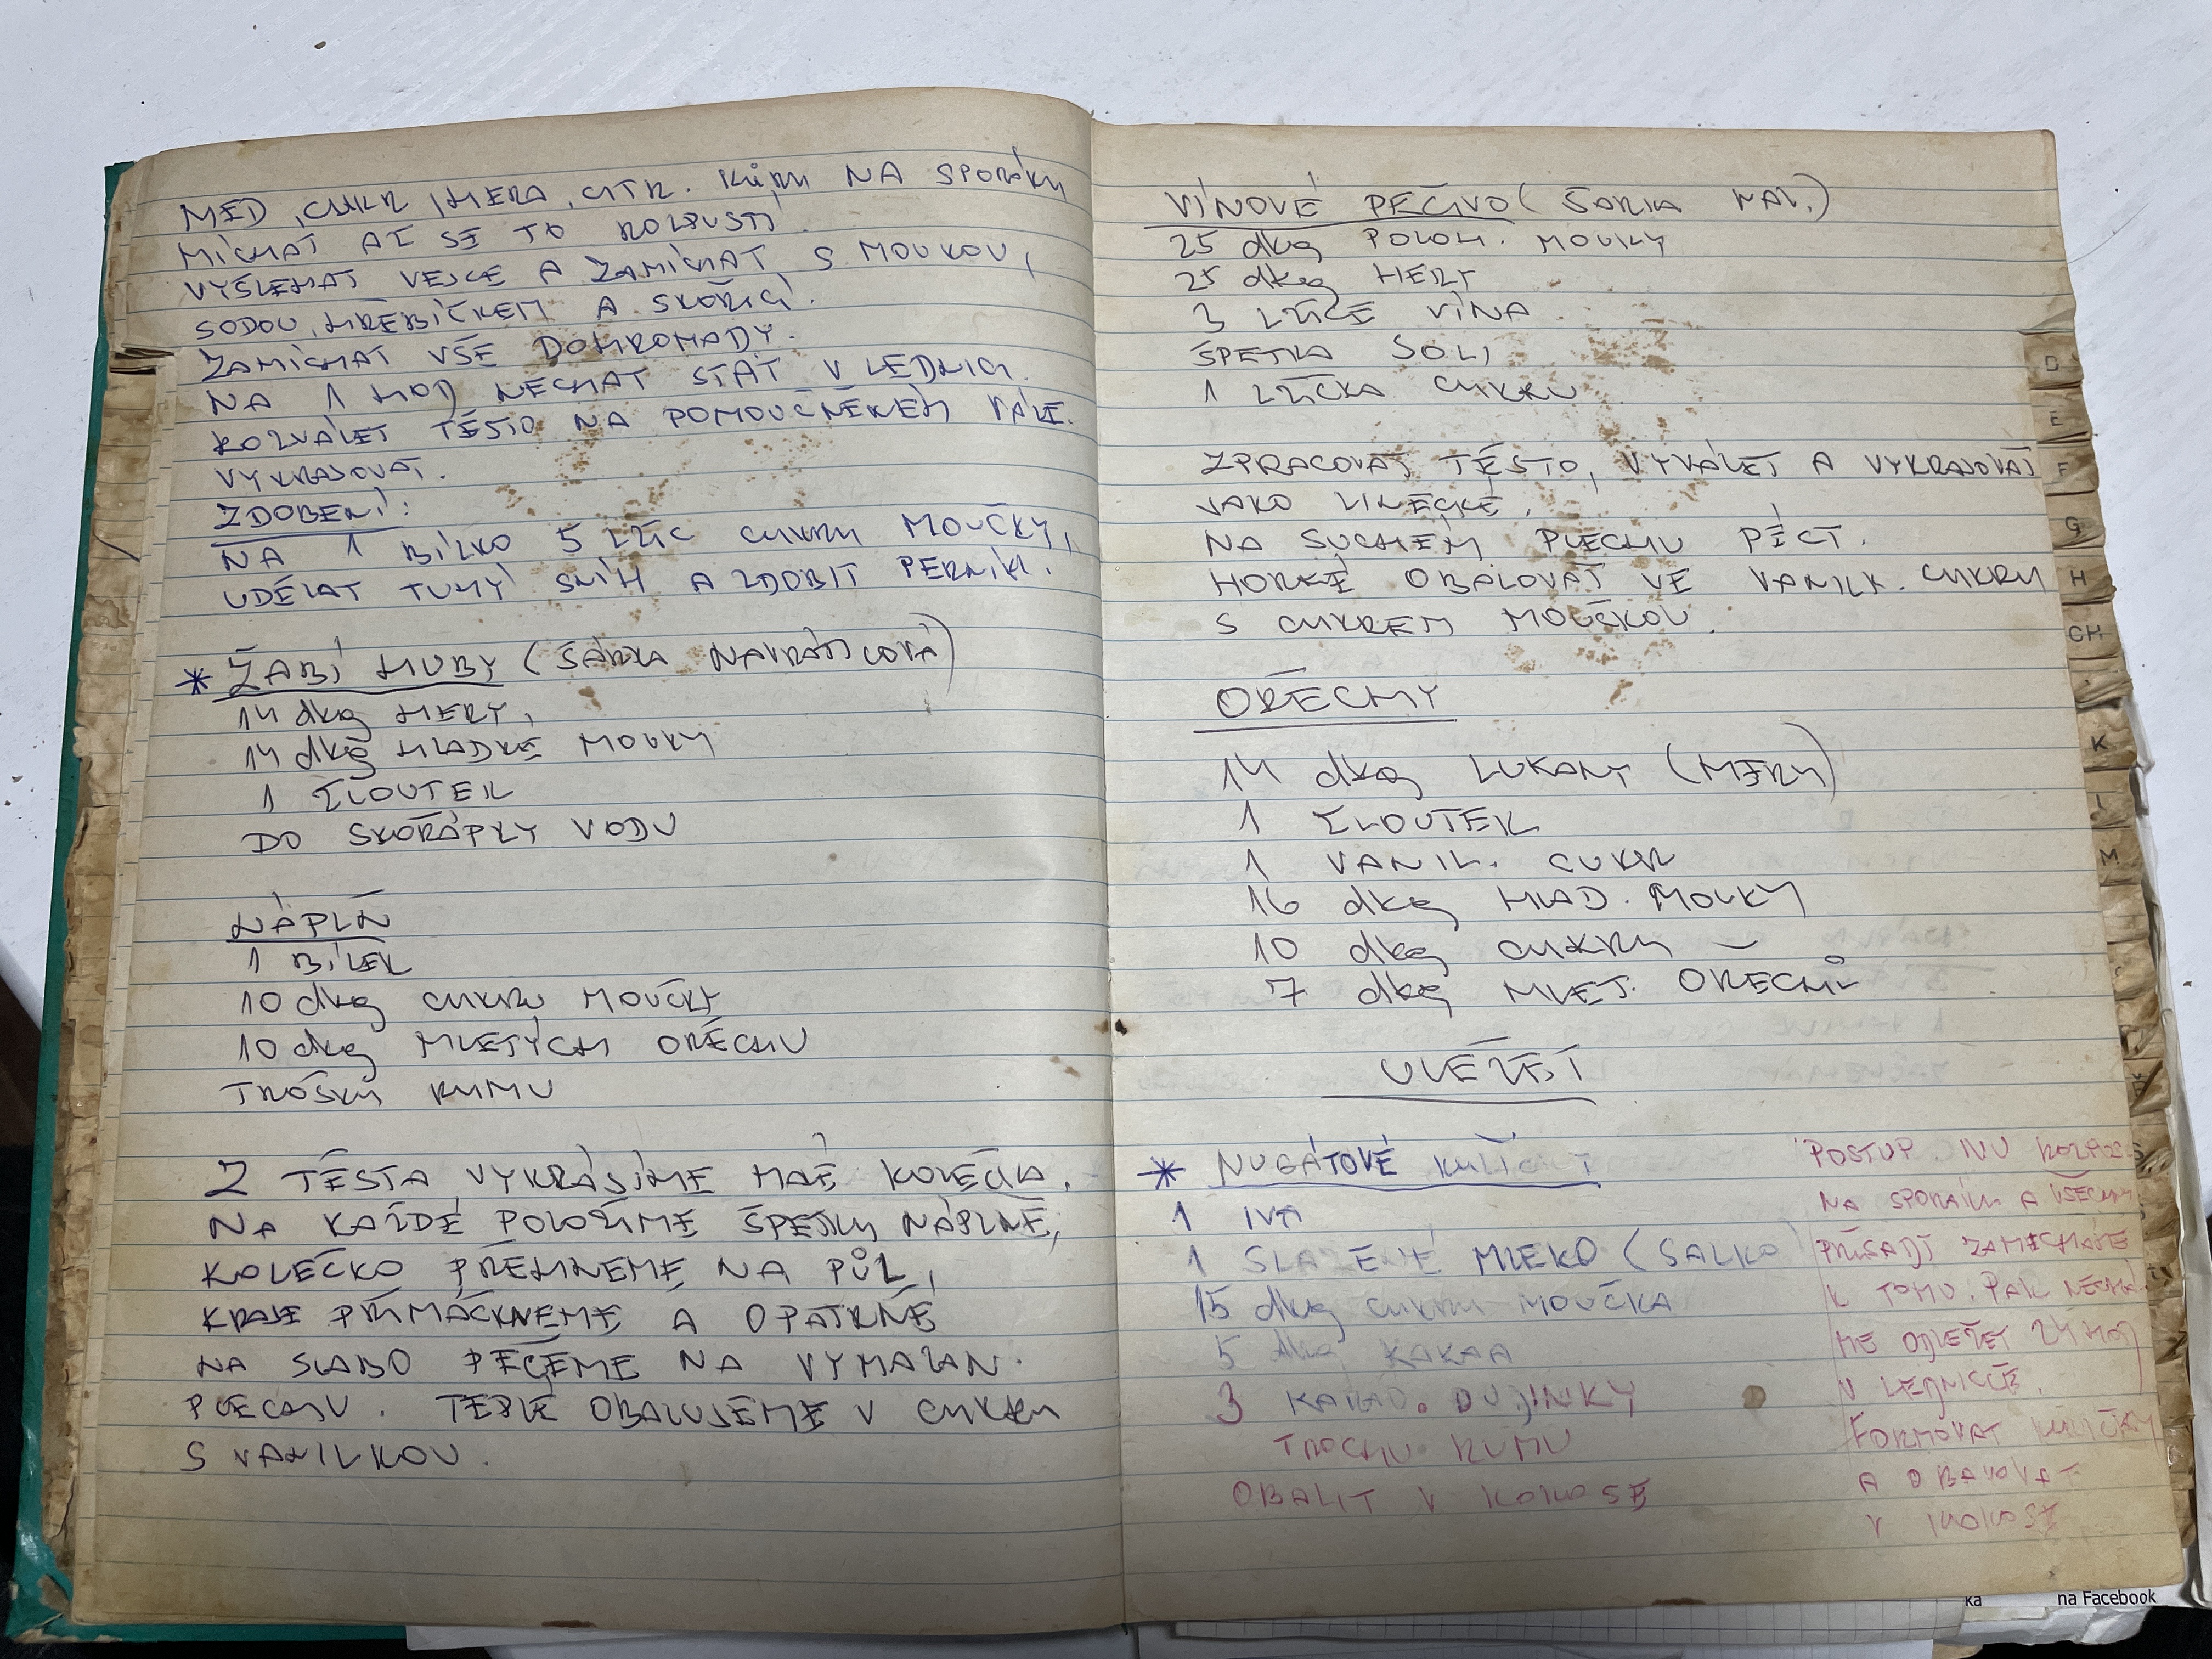 MED, CUKR, HERA, CITR. KŮRU NA SPORÁKU
MÍCHAT AŽ SE TO ROZPUSTÍ.
VYŠLEHAT VEJCE A ZAMÍCHAT S MOUKOU,
SODOU, HŘEBÍČKEM A SKOŘICÍ.
ZAMÍCHAT VŠE DOHROMADY.
NA 1 HOD NECHAT STÁT V LEDNICI.
ROZVÁLET TĚSTO NA POMOUČNĚNÉM VÁLE.
VYKRAJOVAT.
ZDOBENÍ:
NA 1 BÍLKO 5 LŽIC CUKRU MOUČKY,
UDĚLAT TUHÝ SNÍH A ZDOBIT PERNÍKY.
* ŽABÍ HUBY (SÁŇKA NAVRÁTILOVÁ)
14 dkg HERY,
14 dkg HLADKÉ MOUKY
1 ŽLOUTEK
DO SKOŘÁPKY VODU
NÁPLŇ
1 BÍLEK
10 dkg CUKRU MOUČKY
10 dkg MLETÝCH OŘECHŮ
TROŠKU RUMU
Z TĚSTA VYKRÁJÍME MALÉ KOLEČKA.
NA KAŽDÉ POLOŽÍME ŠPETKU NÁPLNĚ,
KOLEČKO PŘEHNEME NA PŮL,
KRAJE PŘIMÁČKNEME A OPATRNĚ
NA SLABO PEČEME NA VYMAZAN.
PLECHU. TEPLÉ OBALUJEME V CUKRU
S VANILKOU.
VÍNOVÉ PEČIVO (SOŇKA NAV.)
25 dkg POLOH. MOUKY
25 dkg HERY
3 LŽÍCE VÍNA
ŠPETKA SOLI
1 LŽIČKA CUKRU
ZPRACOVAT TĚSTO, VYVÁLET A VYKRAJOVAT
JAKO LINECKÉ.
NA SUCHÉM PLECHU PÉCT.
HORKÉ OBALOVAT VE VANILK. CUKRU
S CUKREM MOUČKOU
OŘECHY
14 dkg LUKANY (HERU)
1 ŽLOUTEK
1 VANIL. CUKR
16 dkg HLAD. MOUKY
10 dkg CUKRU
7 dkg MLET. OŘECHŮ
UPÉCT
* NUGÁTOVÉ KULIČKY
1 IVA
1 SLAZENÉ MLÉKO (SALKO)
15 dkg CUKRU-MOUČKA
5 dkg KAKAA
3 KAKAO. DUJINKY
TROCHU RUMU
OBALIT V KOKOSE
POSTUP: IVU ROZPUS.
NA SPORÁKU A VŠECHNY
PŘÍSADY ZAMÍCHÁME
K TOMU. PAK NECHÁ-
ME ODLEŽET 24 HOD
V LEDNIČCE.
FORMOVAT KULIČKY
A OBALOVAT
V KOKOSE
D
E
F
G
H
CH
K
L
M
ka
na Facebook